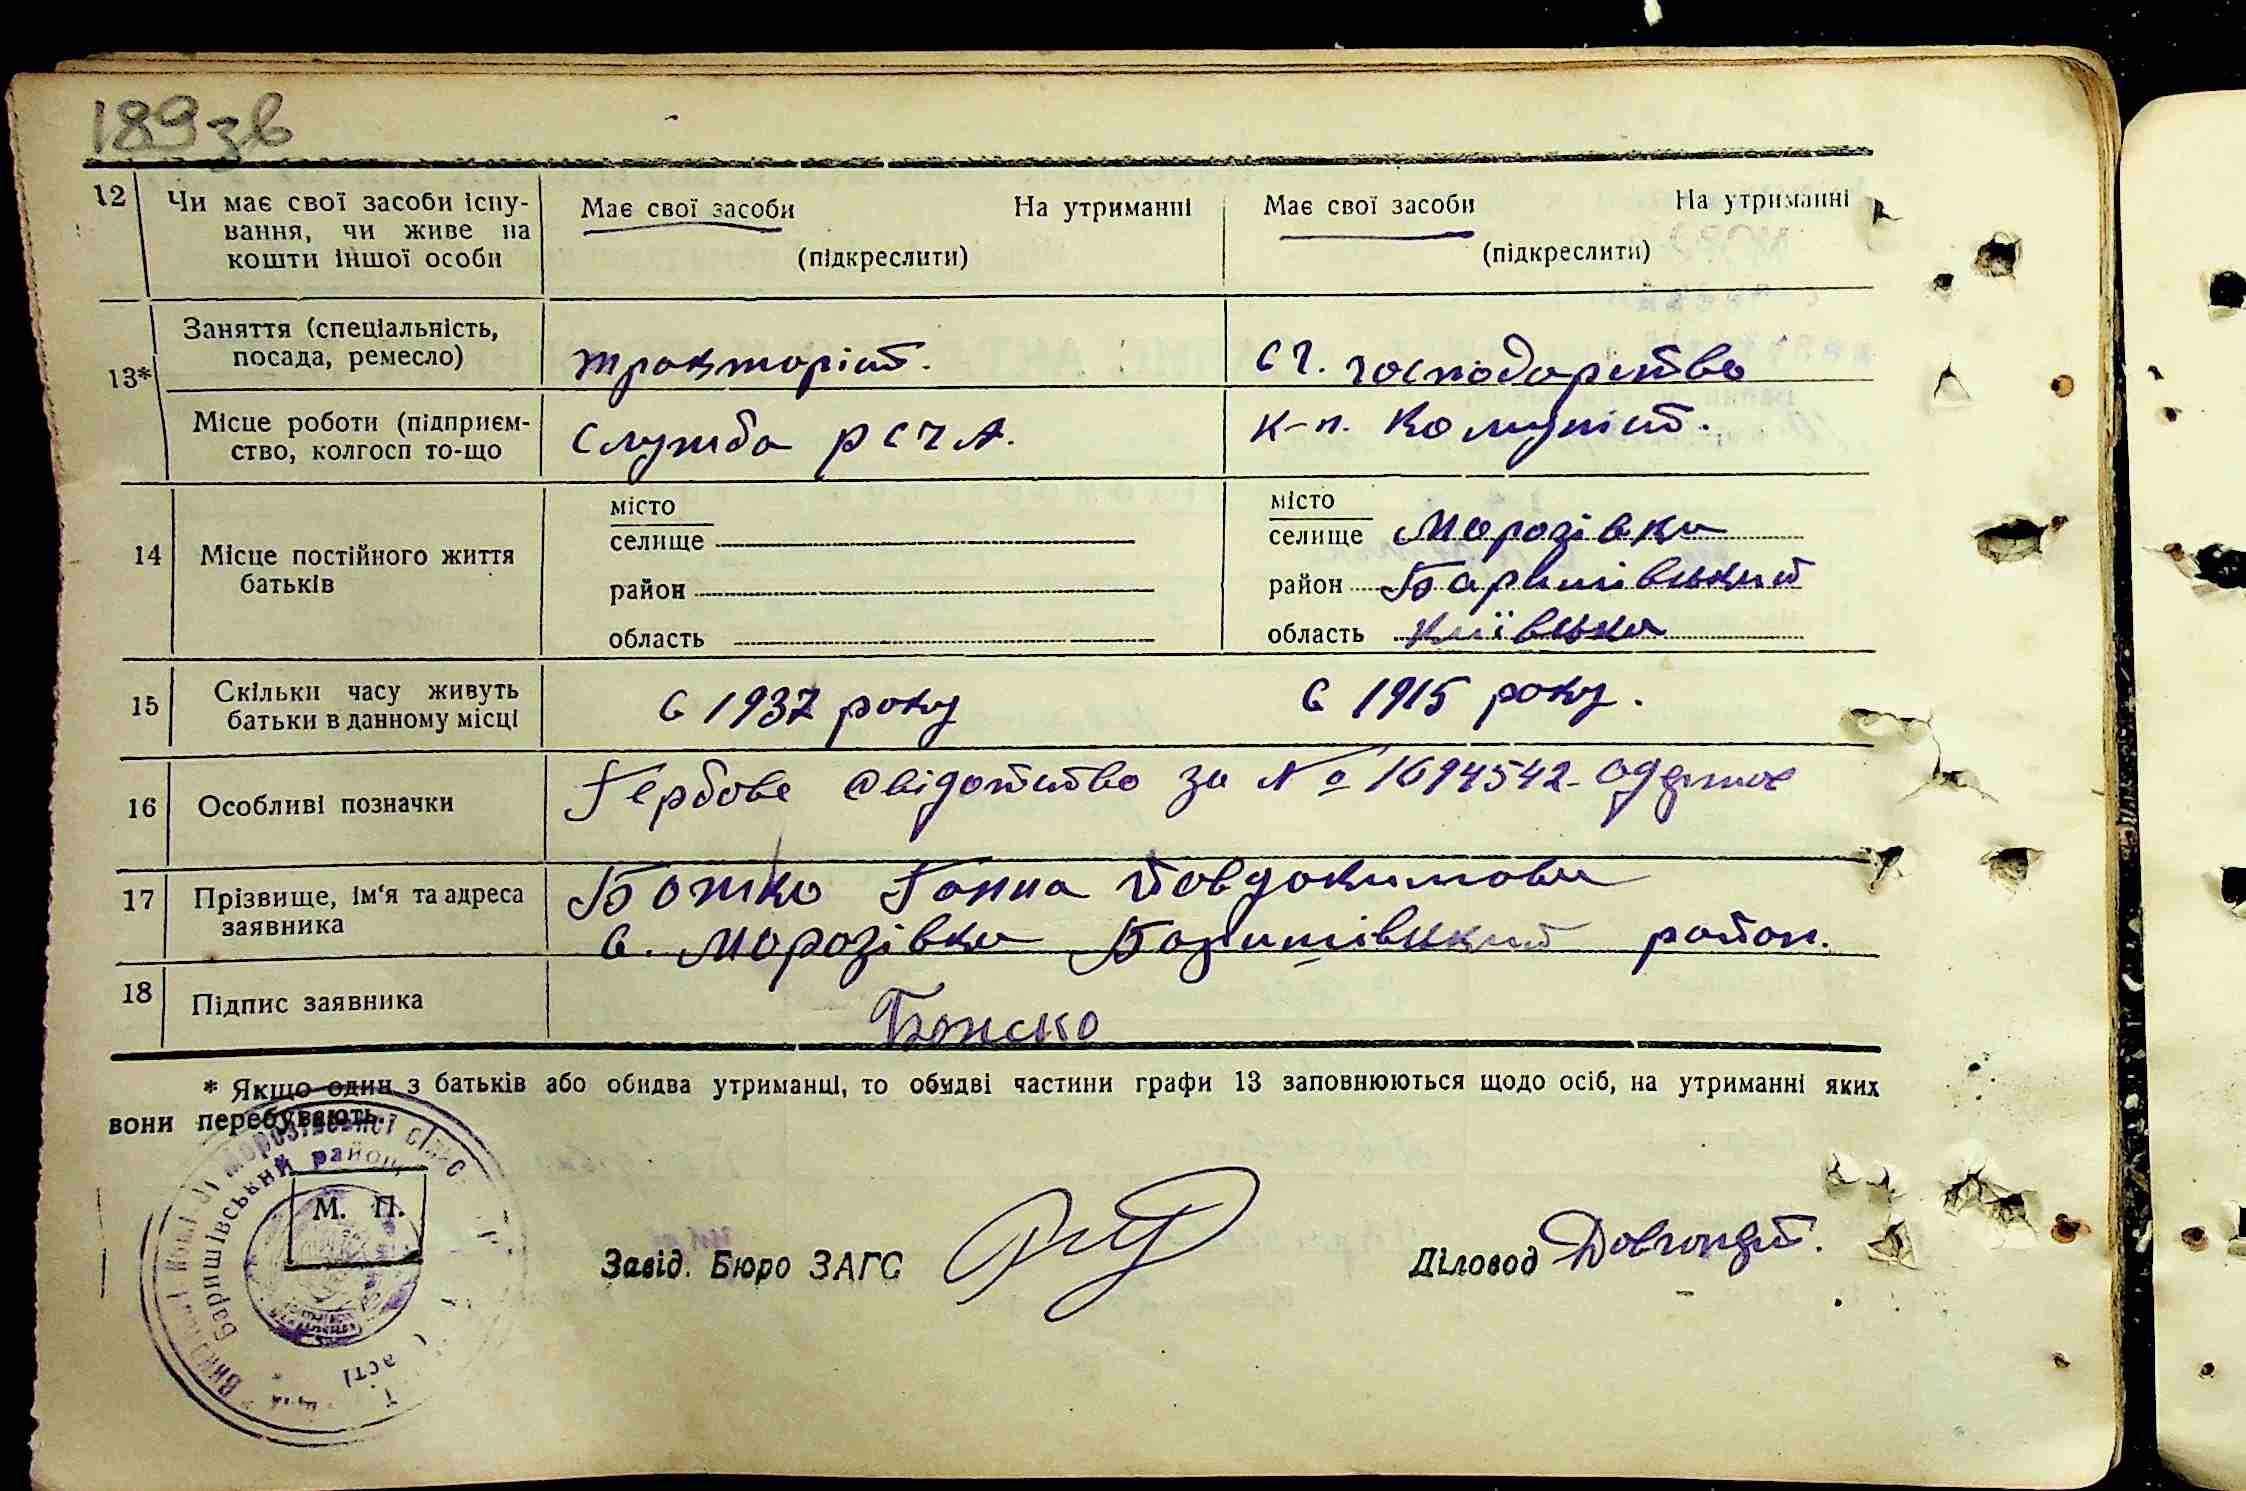 189зв
12 Чи має свої засоби існу-
вання, чи живе на
кошти іншої особи
Має свої засоби На утриманні
(підкреслити)
Має свої засоби На утриманні
(підкреслити)
13*
Заняття (спеціальність,
посада, ремесло)
тракторіст.
с г. господарство
Місце роботи (підприєм-
ство, колгосп то-що
служба РСЧА.
к-п. Комуніст.
14 Місце постійного життя
батьків
місто
селище
район
область
місто
селище Морозівка
район Баришівський
область Київська
15 Скільки часу живуть
батьки в данному місці
с 1937 року
с 1915 року.
16 Особливі позначки
Гербове свідотство за № 1694542- одержав
17 Прізвище, ім'я та адреса
заявника
Божко Ганна Йовдокимовна
с. Морозівка Баришівський район.
18 Підпис заявника
Божско
* Якщо один з батьків або обидва утриманці, то обидві частини графи 13 заповнюються щодо осіб, на утриманні яких
вони перебувають.
Баришівський район
М. П.
Завід. Бюро ЗАГС
Діловод